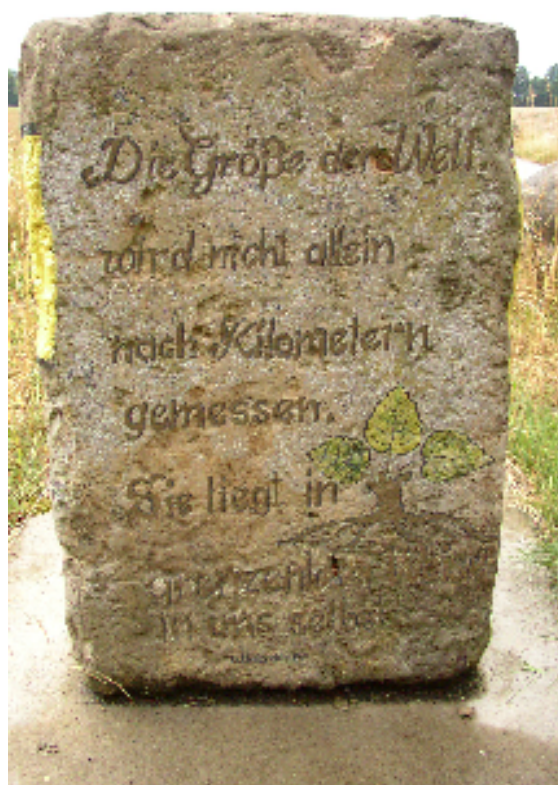 Die Größe der Welt
wird nicht allein
nach Kilometern
gemessen.
Sie liegt in
in uns selber